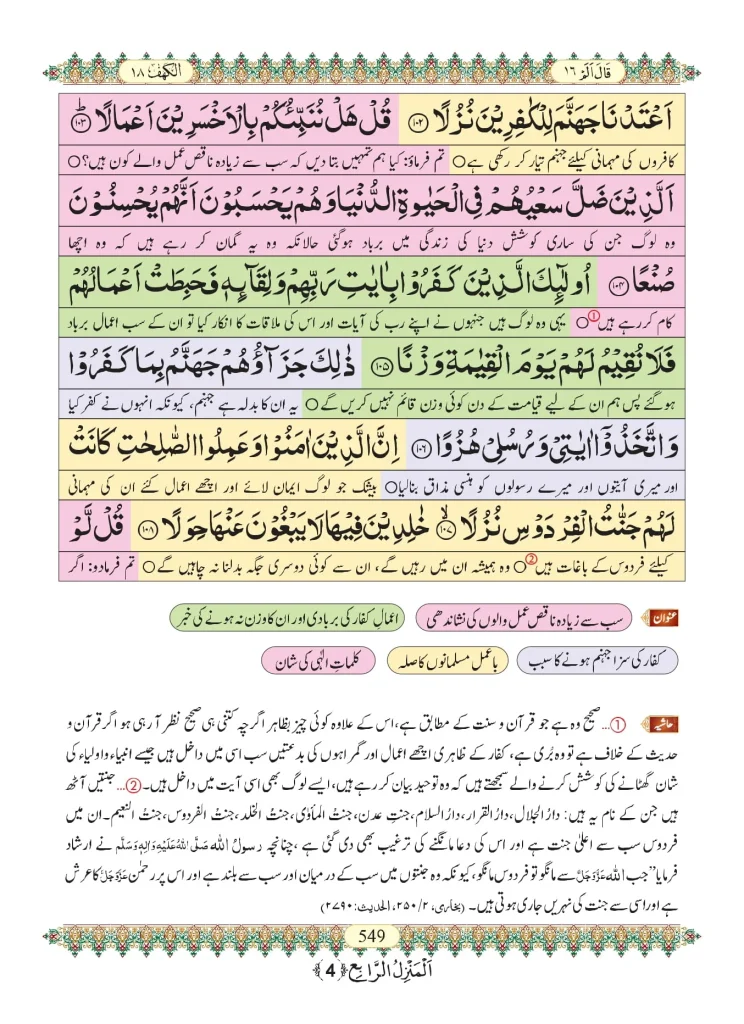 قَالَ اَلَمْ ١٦
الكهف ١٨
اَعْتَدْنَا جَهَنَّمَ لِلْكٰفِرِیْنَ نُزُلًا ﴿۱۰۲﴾ قُلْ هَلْ نُنَبِّئُكُمْ بِالْاَخْسَرِیْنَ اَعْمَالًا ﴿۱۰۳﴾ؕ
کافروں کی مہمانی کیلئے جہنم تیار کر رکھی ہے○ تم فرماؤ: کیا ہم تمہیں بتا دیں کہ سب سے زیادہ ناقص عمل والے کون ہیں؟○
اَلَّذِیْنَ ضَلَّ سَعْیُهُمْ فِی الْحَیٰوةِ الدُّنْیَا وَ هُمْ یَحْسَبُوْنَ اَنَّهُمْ یُحْسِنُوْنَ
وہ لوگ جن کی ساری کوشش دنیا کی زندگی میں برباد ہوگئی حالانکہ وہ یہ گمان کر رہے ہیں کہ وہ اچھا
صُنْعًا ﴿۱۰۴﴾ اُولٰٓىٕكَ الَّذِیْنَ كَفَرُوْا بِاٰیٰتِ رَبِّهِمْ وَ لِقَآىٕهٖ فَحَبِطَتْ اَعْمَالُهُمْ
کام کررہے ہیں①○ یہی وہ لوگ ہیں جنہوں نے اپنے رب کی آیات اور اس کی ملاقات کا انکار کیا تو ان کے سب اعمال برباد
فَلَا نُقِیْمُ لَهُمْ یَوْمَ الْقِیٰمَةِ وَزْنًا ﴿۱۰۵﴾ ذٰلِكَ جَزَآؤُهُمْ جَهَنَّمُ بِمَا كَفَرُوْا
ہوگئے پس ہم ان کے لیے قیامت کے دن کوئی وزن قائم نہیں کریں گے○ یہ ان کا بدلہ ہے جہنم، کیونکہ انہوں نے کفر کیا
وَ اتَّخَذُوْۤا اٰیٰتِیْ وَ رُسُلِیْ هُزُوًا ﴿۱۰۶﴾ اِنَّ الَّذِیْنَ اٰمَنُوْا وَ عَمِلُوا الصّٰلِحٰتِ كَانَتْ
اور میری آیتوں اور میرے رسولوں کو ہنسی مذاق بنالیا○ بیشک جو لوگ ایمان لائے اور اچھے اعمال کئے ان کی مہمانی
لَهُمْ جَنّٰتُ الْفِرْدَوْسِ نُزُلًا ﴿۱۰۷﴾ۙ خٰلِدِیْنَ فِیْهَا لَا یَبْغُوْنَ عَنْهَا حِوَلًا ﴿۱۰۸﴾ قُلْ لَّوْ
کیلئے فردوس کے باغات ہیں②○ وہ ہمیشہ ان میں رہیں گے، ان سے کوئی دوسری جگہ بدلنا نہ چاہیں گے○ تم فرمادو: اگر
عنوان سب سے زیادہ ناقص عمل والوں کی نشاندھی اعمالِ کفار کی بربادی اور ان کا وزن نہ ہونے کی خبر
کفار کی سزا جہنم ہونے کا سبب باعمل مسلمانوں کا صلہ کلماتِ الٰہی کی شان
حاشیہ ①…صحیح وہ ہے جو قرآن و سنت کے مطابق ہے، اس کے علاوہ کوئی چیز بظاہر اگرچہ کتنی ہی صحیح نظر آرہی ہو اگر قرآن و
حدیث کے خلاف ہے تو وہ بُری ہے، کفار کے ظاہری اچھے اعمال اور گمراہوں کی بدعتیں سب اسی میں داخل ہیں جیسے انبیاء و اولیاء کی
شان گھٹانے کی کوشش کرنے والے سمجھتے ہیں کہ وہ توحید بیان کر رہے ہیں، ایسے لوگ بھی اسی آیت میں داخل ہیں۔ ②…جنتیں آٹھ
ہیں جن کے نام یہ ہیں: دارُ الجلال، دارُ القرار، دارُ السلام، جنتِ عدن، جنتُ المأوٰی، جنتُ الخلد، جنتُ الفردوس، جنتُ النعیم۔ ان میں
فردوس سب سے اعلیٰ جنت ہے اور اس کی دعا مانگنے کی ترغیب بھی دی گئی ہے، چنانچہ رسولُ اللہ صَلَّی اللہُ عَلَیْہِ وَاٰلِہٖ وَسَلَّم نے ارشاد
فرمایا”جب اللہ عَزَّوَجَلَّ سے مانگو تو فردوس مانگو، کیونکہ وہ جنتوں میں سب کے درمیان اور سب سے بلند ہے اور اس پر رحمٰن عَزَّوَجَلَّ کا عرش
ہے اور اسی سے جنت کی نہریں جاری ہوتی ہیں۔ (بخاری، ۲/۲۵۰، الحدیث: ۲۷۹۰)
549
اَلْمَنْزِلُ الرَّابِع ﴿4﴾